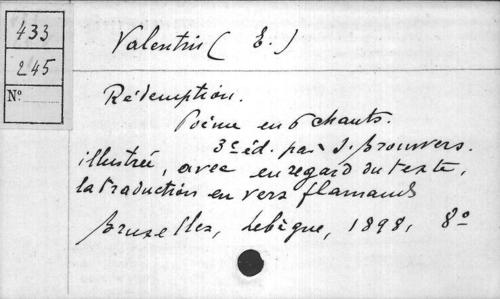 433
245
N°
Valentin (E.)
Rédemption.
Poème en 6 chants.
3e éd. par J. Brouwers.
illustrée, avec en regard du texte,
la traduction en vers flamands
Bruxelles, Lebègue, 1898, 8°